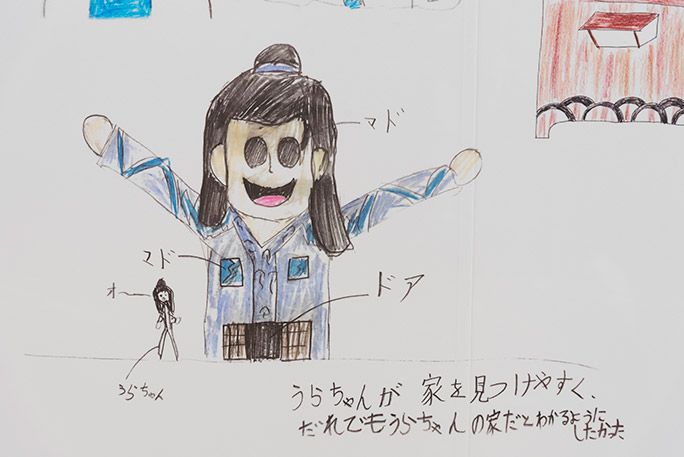 マド
マド
ドア
オ〜
うらちゃん
うらちゃんが 家を見つけやすく、
だれでもうらちゃんの家だとわかるように
したかった